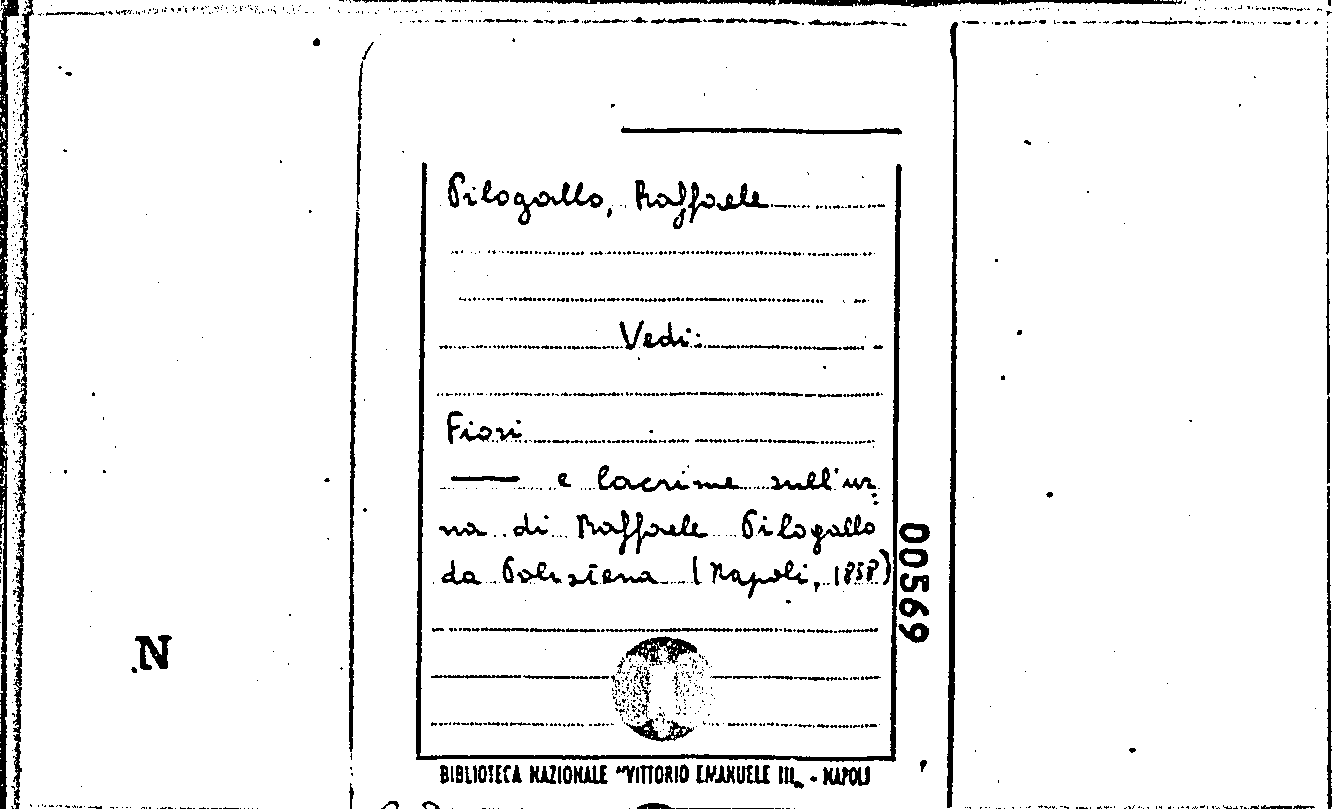 Pilogallo, Raffaele
Vedi:
Fiori
—— e lacrime sull'ur=
na di Raffaele Pilogallo
da Polistena (Napoli, 1858)
00569
N
BIBLIOTECA NAZIONALE "VITTORIO EMANUELE III„ - NAPOLI